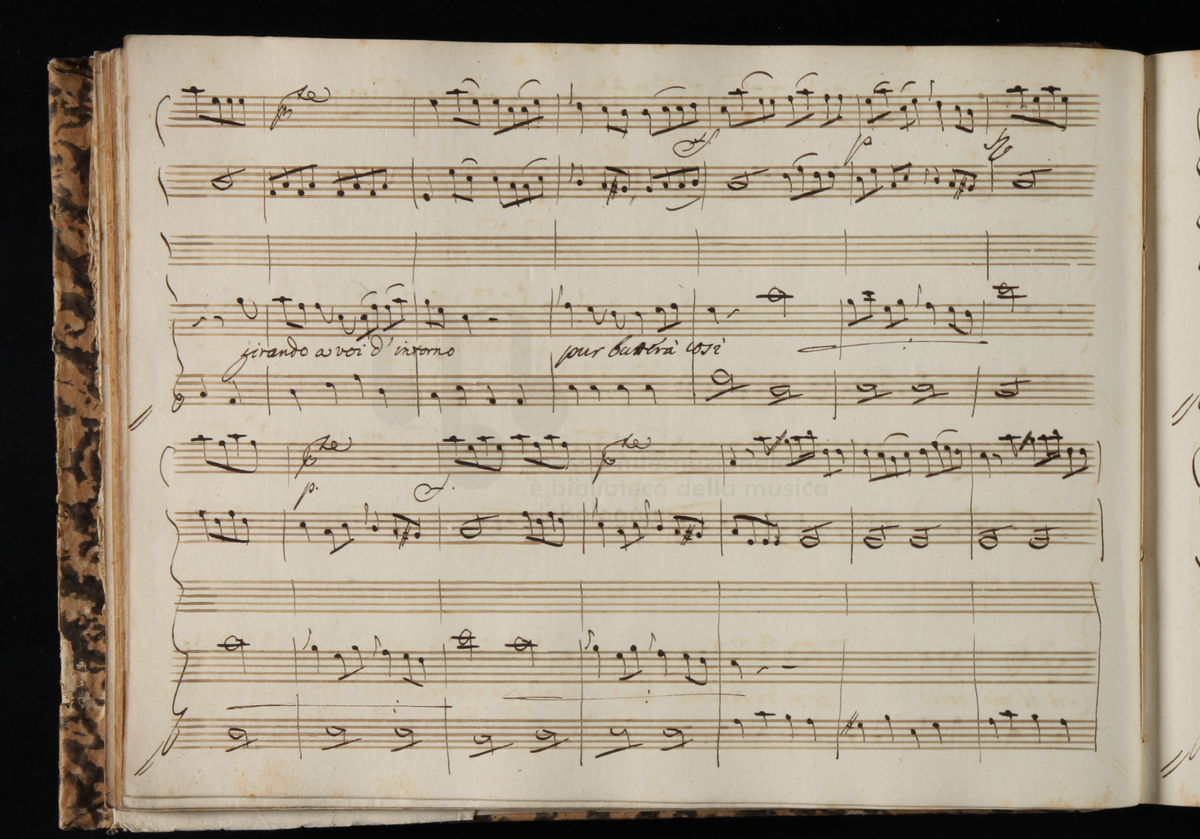 pte
f. p f
girando a voi d'intorno pur batterà così
pte pte
p. f.
e biblioteca della musica